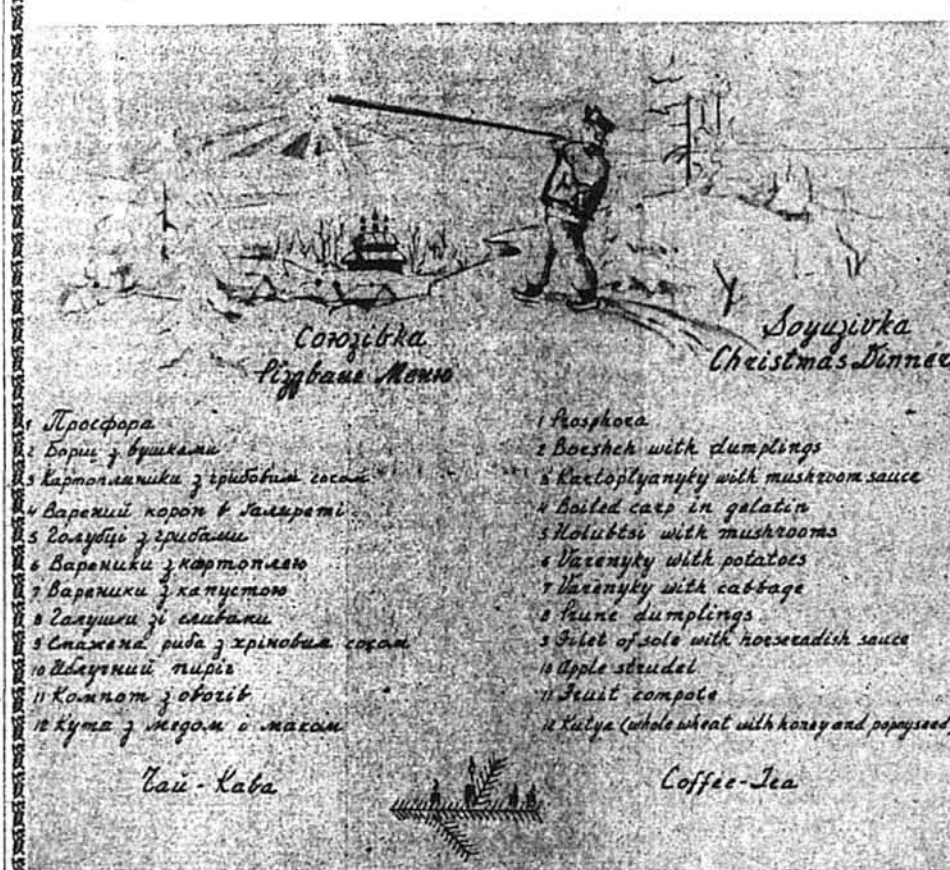 Союзівка
Різдвяне Меню
1 Просфора
2 Борщ з вушками
3 Картопляники з грибовим сосом
4 Варений короп в галяреті
5 Голубці з грибами
6 Вареники з картоплею
7 Вареники з капустою
8 Галушки зі сливами
9 Смажена риба з хріновим сосом
10 Яблучний пиріг
11 Компот з овочів
12 Кутя з медом і маком
Чай - Кава
Soyuzivka
Christmas Dinner
1 Prosphora
2 Borshch with dumplings
3 Kartoplyanyky with mushroom sauce
4 Boiled carp in gelatin
5 Holubtsi with mushrooms
6 Varenyky with potatoes
7 Varenyky with cabbage
8 Prune dumplings
9 Filet of sole with horseradish sauce
10 Apple strudel
11 Fruit compote
12 Kutya (whole wheat with honey and popyseed)
Coffee-Tea